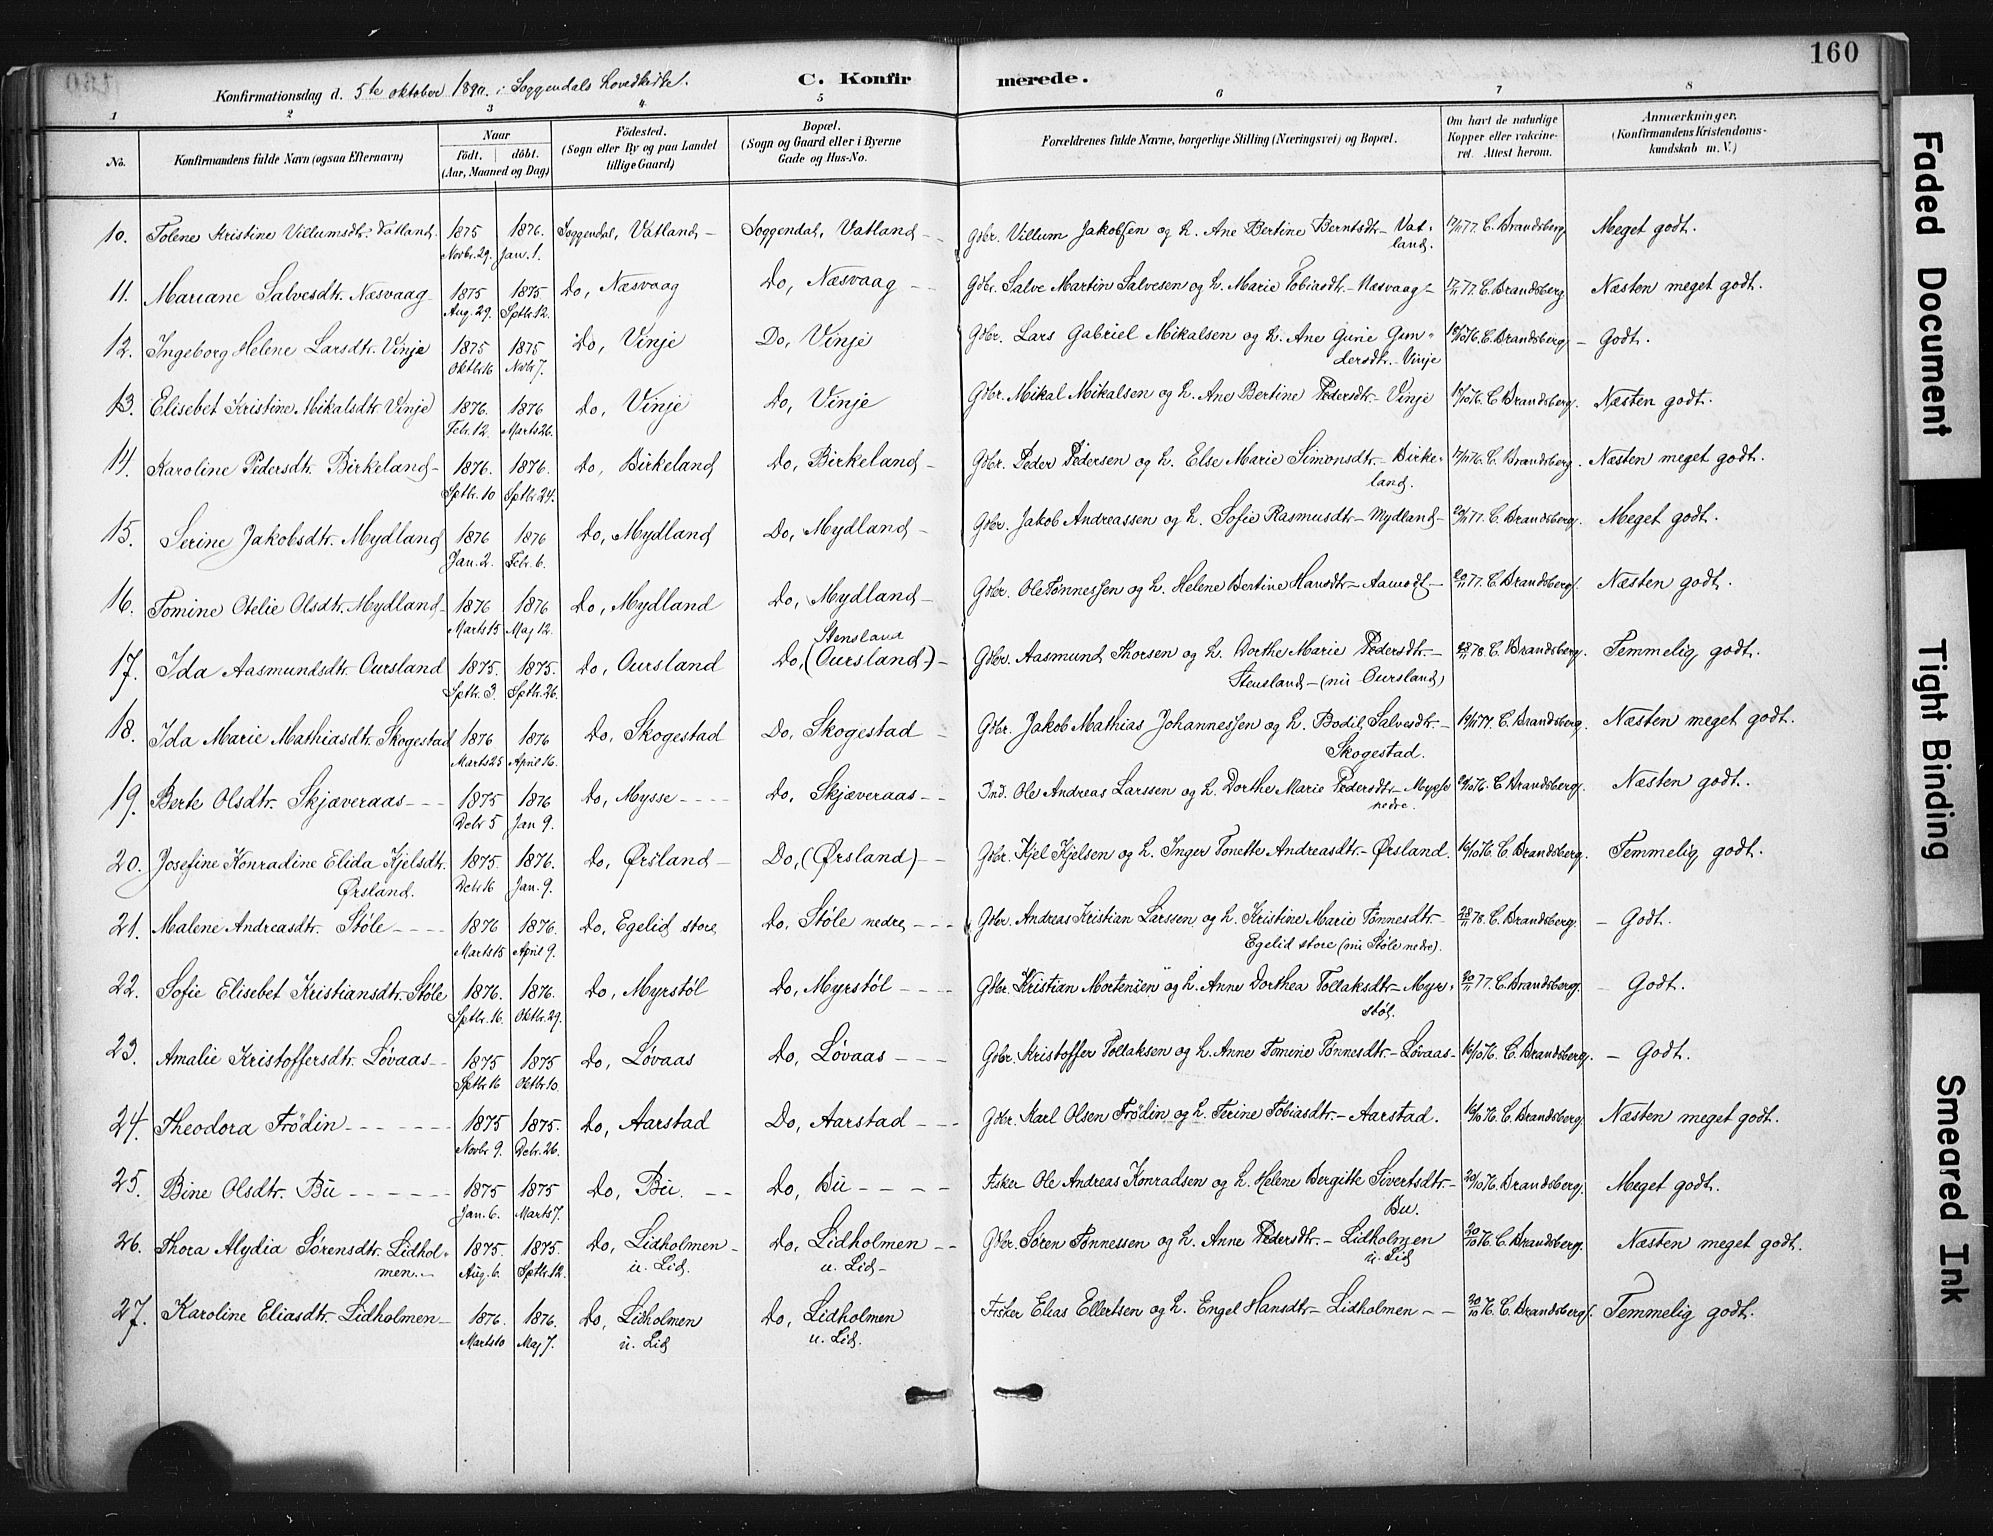 160
C. Konfirmerede.
Konfirmationsdag d. 5te oktober 1890. i Soggendals hovedkirke.
1 2 3 4 5 6 7 8
No. Konfirmandens fulde Navn (ogsaa Efternavn) Naar født. | døbt. (Aar, Maaned og Dag) Fødested. (Sogn eller By og paa Landet tillige Gaard) Bopæl. (Sogn og Gaard eller i Byerne Gade og Hus-No. Forældrenes fulde Navne, borgerlige Stilling (Næringsvei) og Bopæl. Om havt de naturlige Kopper eller vaccineret. Attest herom. Anmærkninger. (Konfirmandens Kristendomskundskab m. V.)
10. Tolene Kristine Villumsdtr. Vatland. 1875 Novbr. 29. 1876. Jan. 1. Soggendal, Vatland - Soggendal, Vatland - Gdbr. Villum Jakobsen og h. Ane Bertine Berntsdtr - Vatland. 17/11 77. C. Brandsberg Meget godt.
11. Mariane Salvesdtr. Næsvaag 1875 Aug. 29. 1875 Sptbr. 12. Do, Næsvaag Do, Næsvaag - Gdbr. Salve Martin Salvesen og h. Marie Tobiasdtr - Næsvaag - 17/11 77. C. Brandsberg Næsten meget godt.
12. Ingeborg Helene Larsdtr. Vinje 1875 Oktbr 16 1875 Novbr 7. Do, Vinje Do, Vinje Gdbr. Lars Gabriel Mikalsen og h. Ane Gunie Gundersdtr. - Vinje 16/10 76. C. Brandsberg - Godt.
13. Elisebet Kristine Mikalsdtr Vinje 1876. Febr. 12. 1876 Marts 26. Do, Vinje Do, Vinje Gdbr. Mikal Mikalsen og h. Ane Bertine Pedersdtr - Vinje 16/10 76. C. Brandsberg. Næsten godt.
14. Karoline Pedersdtr. Birkeland - 1876. Sptbr. 10 1876. Sptbr 24. Do, Birkeland Do, Birkeland - Gdbr. Peder Pedersen og h. Else Marie Simonsdtr. - Birkeland. 17/11 76. C. Brandsberg. Næsten meget godt.
15. Serine Jakobsdtr. Mydland 1876 Jan. 2. 1876 Febr. 6. Do, Mydland Do, Mydland - Gdbr. Jakob Andreassen og h. Sofie Rasmusdtr - Mydland - 20/11 77. C. Brandsberg. Meget godt.
16. Tomine Otelie Olsdtr. Mydland - 1876 Marts 15 1876 Maj 12. Do, Mydland Do, Mydland - Gdbr. Ole Tønnessen og h. Helene Bertine Hansdtr - Aamodt - 20/11 77. C. Brandsberg. Næsten godt.
17. Ida Aasmundsdtr. Oursland 1875. Sptbr. 3. 1875. Sptbr. 26. Do, Oursland Do, Stensland (Oursland) - Gdbr. Aasmund Thorsen og h. Dorthe Marie Pedersdtr. - Stensland - (nu Oursland) 28/11 78. C. Brandsberg. Temmelig godt.
18. Ida Marie Mathiasdtr. Skogestad 1876 Marts 25 1876 April 16. Do, Skogestad Do, Skogestad - Gdbr. Jakob Mathias Johannessen og h. Bodil Salvesdtr - Skogestad. 19/11 77. C. Brandsberg. Næsten meget godt.
19. Berte Olsdtr. Skjæveraas - - - 1875 Debr 5 1876 Jan 9. Do, Mysse - - - - Do, Skjæveraas - - Ind. Ole Andreas Larssen og h. Dorthe Marie Pedersdtr - Mysse nedre. C. Brandsberg. Næsten godt.
20. Josefine Konradine Elida Kjelsdtr. Ørsland. 1875. Debr 16 1876. Jan. 9. Do, Ørsland - Do, (Ørsland) - - Gdbr. Kjel Kjelsen og h. Inger Tonette Andreasdtr. - Ørsland. 16/10 76. C. Brandsberg. Temmelig godt.
21. Malene Andreasdtr. Støle - - - - 1876 Marts 15 1876. April 9. Do, Egelid store Do. Støle nedre - - - Gdbr. Andreas Kristian Larssen og h. Kristine Marie Tønnesdtr - Egelid store (nu Støle nedre). 28/11 78. C. Brandsberg. - Godt.
22. Sofie Elisebet Kristiansdtr. Støle 1876. Sptbr. 16. 1876. Oktbr. 29. Do, Myrstøl Do, Myrstøl - - - Gdbr. Kristian Mortensen og h. Anne Dorthea Tollaksdtr - Myrstøl. 20/11 77. C. Brandsberg. - Godt.
23. Amalie Kristoffersdtr. Løvaas - - 1875 Sptbr 16 1875 Oktbr. 10. Do, Løvaas Do, Løvaas - - - Gdbr. Kristoffer Tollaksen og h. Anne Tomine Tønnesdtr. - Løvaas - 16/10 76. C. Brandsberg. - Godt.
24. Theodora Frödin - - - - - - 1875 Novbr 9. 1875. Debr. 26. Do, Aarstad Do, Aarstad - - - Gdbr. Karl Olsen Frödin og h. Terine Tobiasdtr. - Aarstad. 16/10 76. C. Brandsberg. Næsten meget godt.
25. Bine Olsdtr. Bu - - - - - - 1875 Jan. 6. 1875 Marts 7. Do, Bu. - - Do, Bu - - - - Fisker Ole Andreas Konradsen og h. Helene Bergitte Sivertsdtr. - Bu. 20/10 76. Brandsberg. Meget godt.
26. Thora Alydia Sørensdtr. Lidholmen. - 1875. Aug. 6. 1875. Sptbr. 12. Do, Lidholmen - u. Lid. Do, Lidholmen - - u. Lid - Gdbr. Søren Tønnessen og h. Anne Pedersdtr. - Lidholmen u. Lid 20/10 76. C. Brandsberg. Næsten meget godt.
27. Karoline Eliasdtr. Lidholmen - 1876. Marts 10 1876. Maj 7. Do, Lidholmen u. Lid Do, Lidholmen u. Lid. Fisker Elias Ellertsen og h. Engel Hansdtr - Lidholmen - - 20/10 76. C. Brandsberg. Temmelig godt.
Faded Document
Tight Binding
Smeared Ink